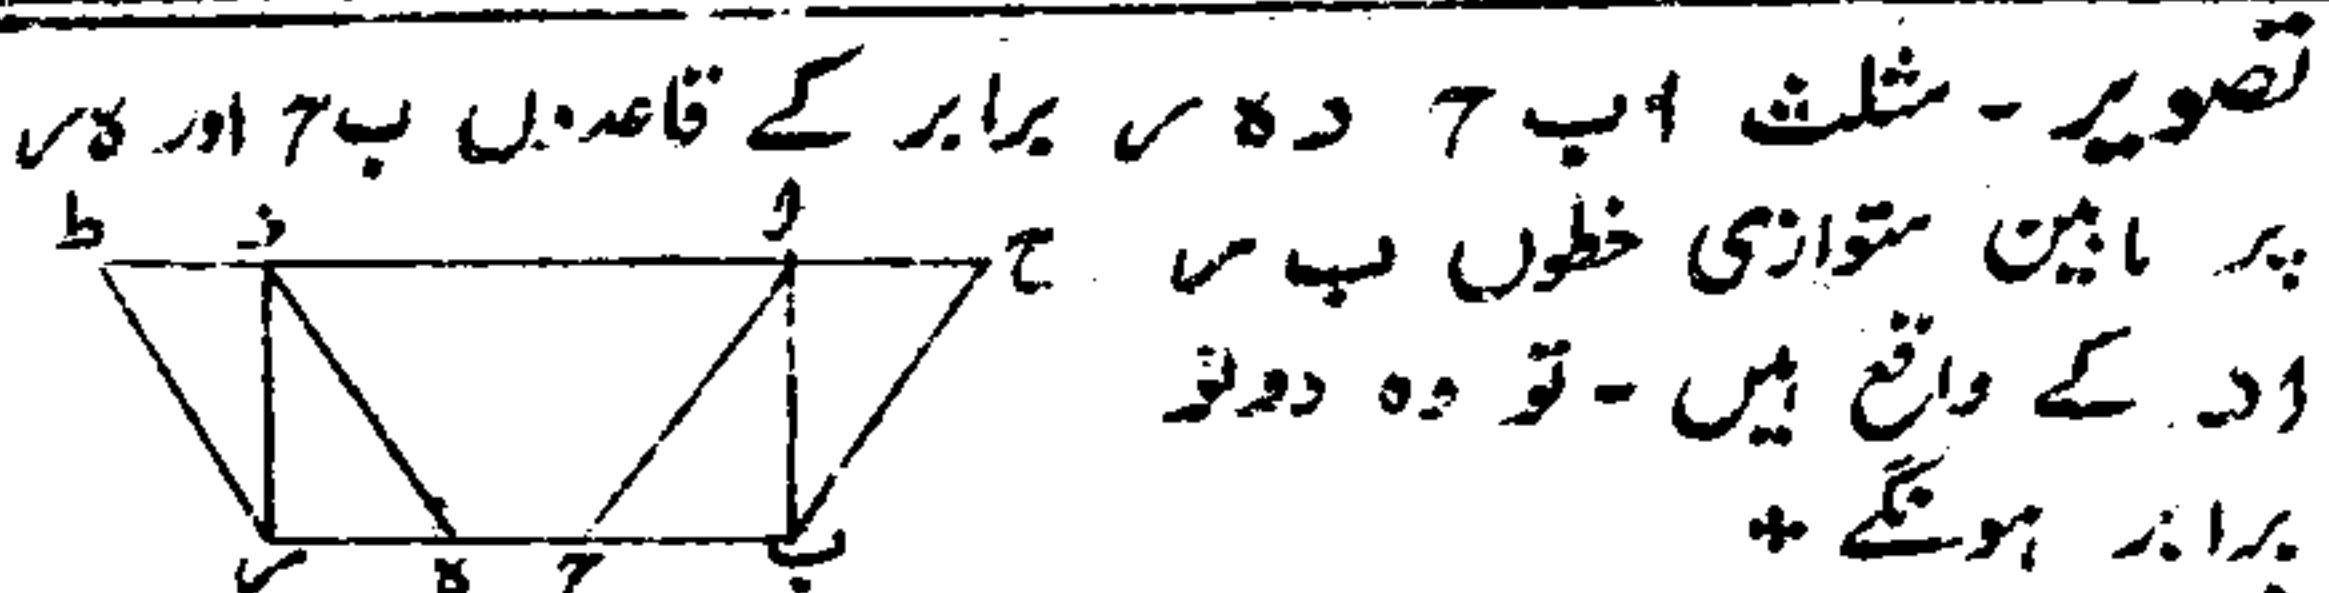 تصویر - مثلث ا ب ح د ہ س برابر کے قاعدوں ب ح اور ہ س
پر مابین متوازی خطوں ب س
ا د کے واقع ہیں - تو وہ دونو
برابر ہونگے +
ط د ا ح
س ہ ح ب